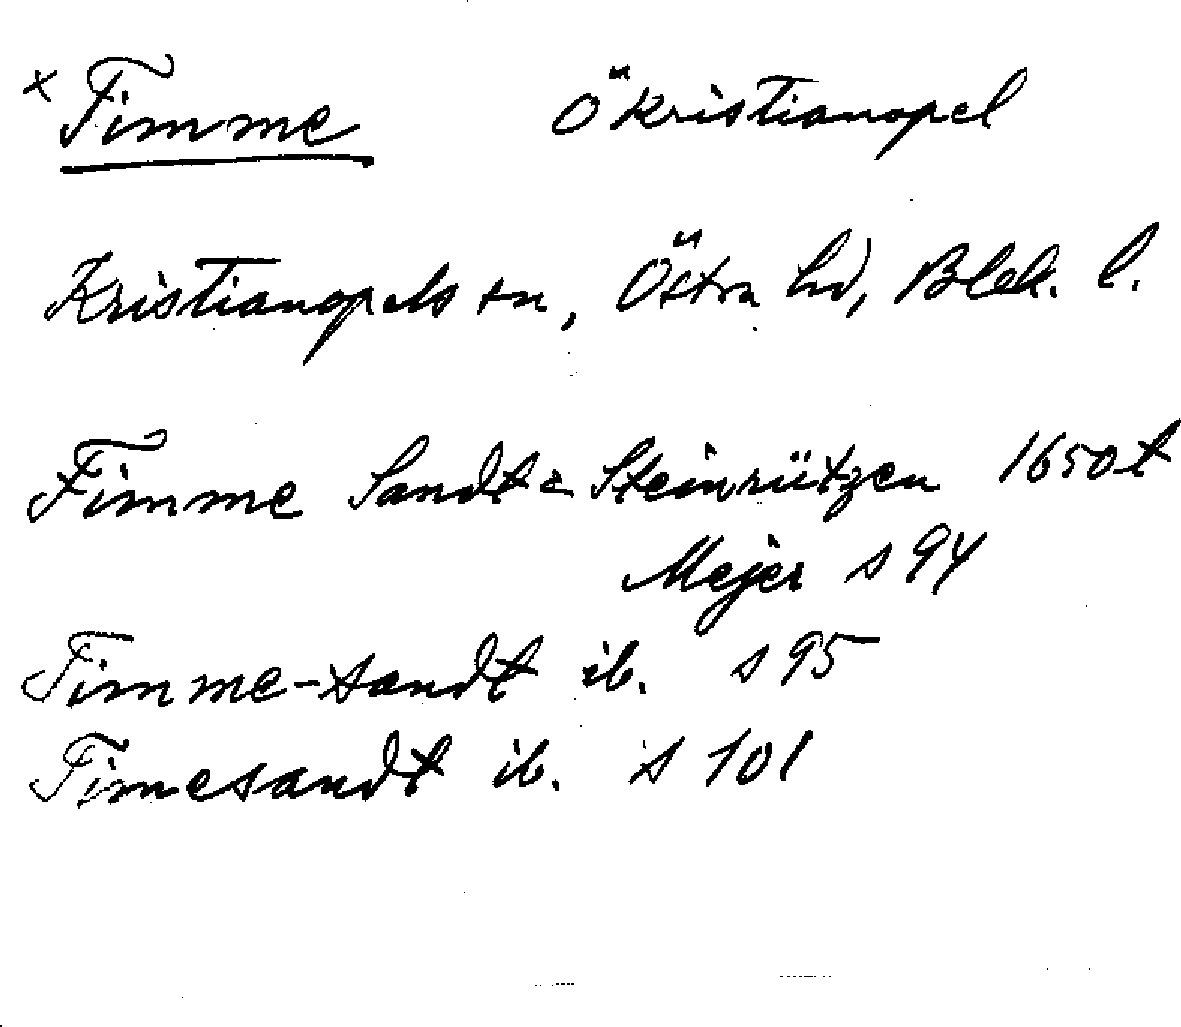 x Timme Ö Kristianopel
Kristianopels sn, Östra hd, Blek. l.
Timme Sandt = Steinrützen 1650t
Mejer s 94
Timme-sandt ib. s 95
Timesandt ib. s 101